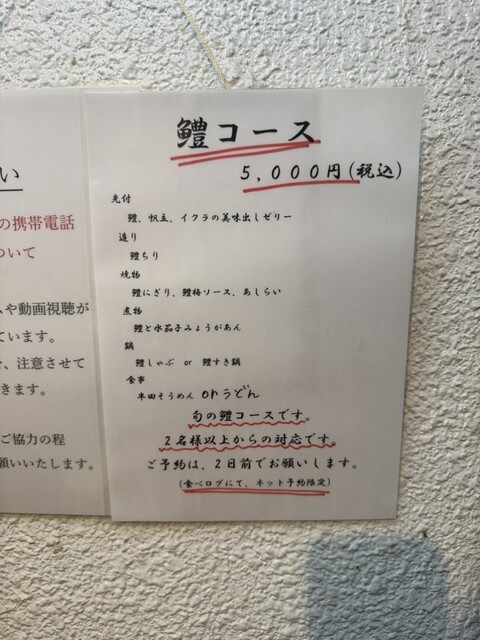 い
の携帯電話
ついて
や動画視聴が
ています。
、注意させて
きます。
ご協力の程
願いいたします。
鱧コース
5,000円(税込)
先付
鱧、帆立、イクラの美味出しゼリー
造り
鱧ちり
焼物
鱧にぎり、鱧梅ソース、あしらい
煮物
鱧と水茄子みょうがあん
鍋
鱧しゃぶ or 鱧すき鍋
食事
半田そうめん orうどん
旬の鱧コースです。
2名様以上からの対応です。
ご予約は、2日前でお願いします。
(食べログにて、ネット予約限定)